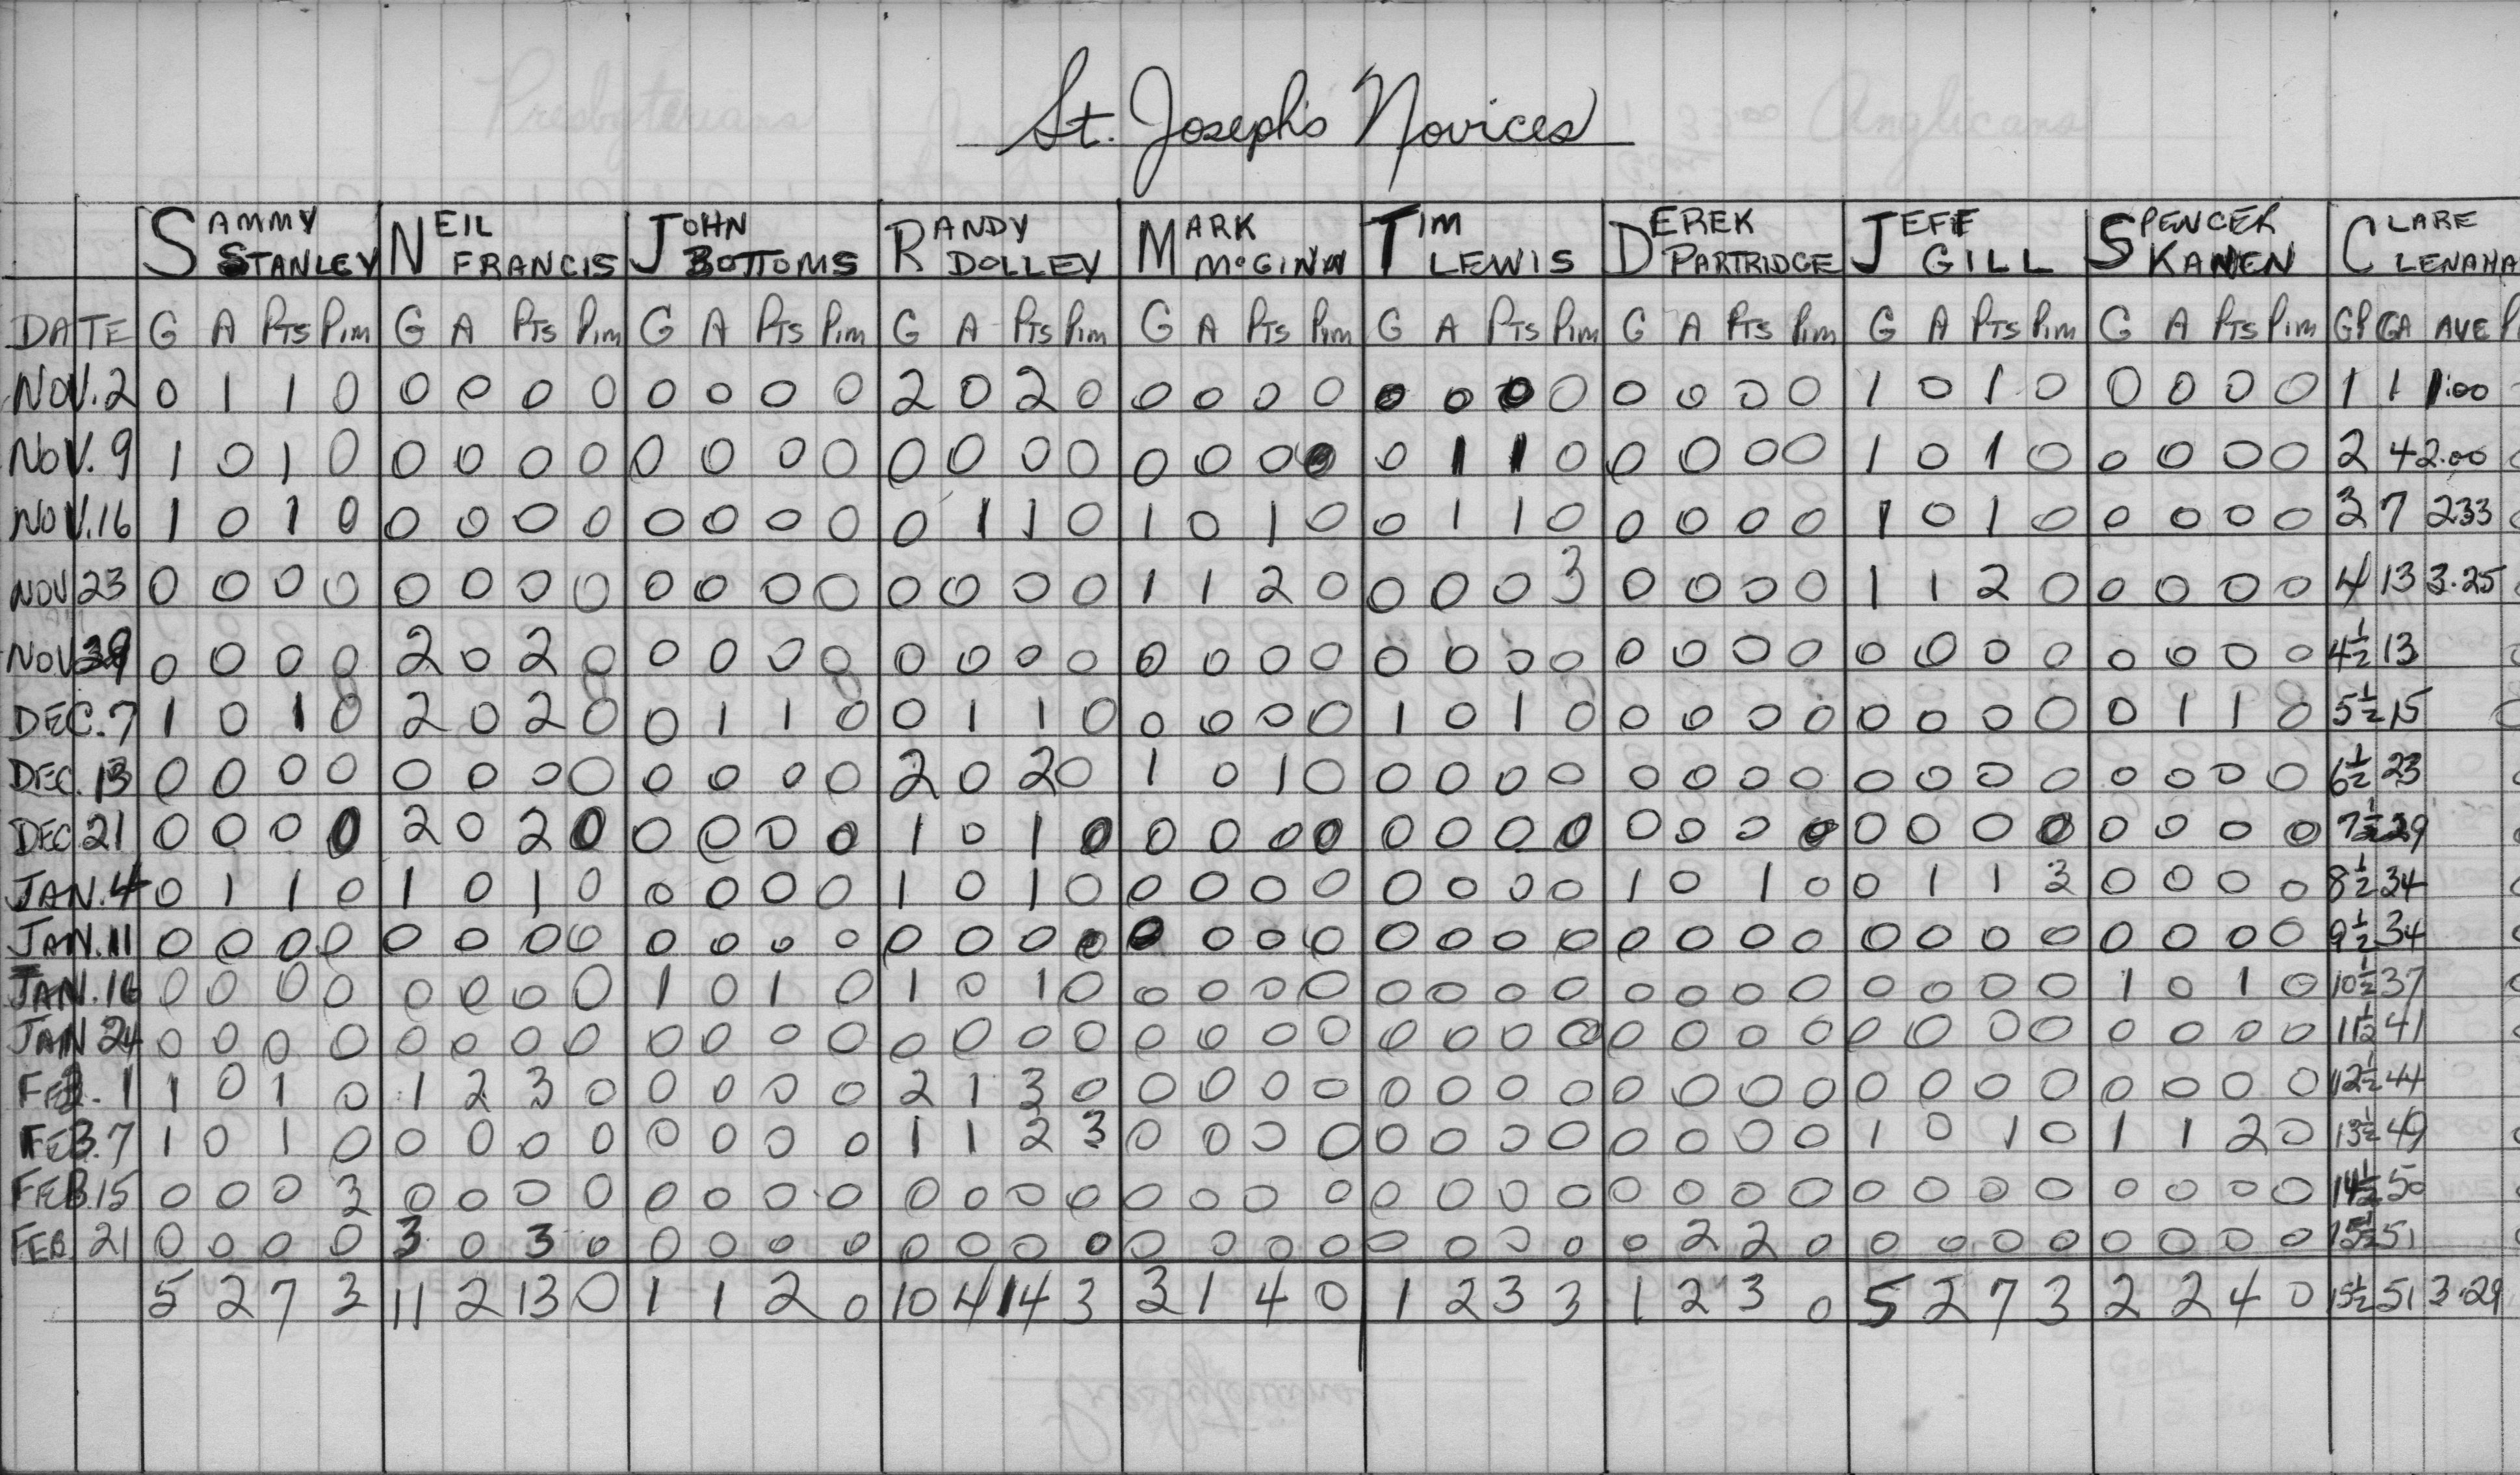 St. Joseph's Novices
SAMMY STANLEY NEIL FRANCIS JOHN BOTTOMS RANDY DOLLEY MARK McGINN TIM LEWIS DEREK PARTRIDGE JEFF GILL SPENCER KANEN CLARE LENAHA
DATE G A PTS PIM G A PTS PIM G A PTS PIM G A PTS PIM G A PTS PIM G A PTS PIM G A PTS PIM G A PTS PIM G A PTS PIM GP GA AVE P
NOV. 2 0 1 1 0 0 0 0 0 0 0 0 0 2 0 2 0 0 0 0 0 0 0 0 0 0 0 0 0 1 0 1 0 0 0 0 0 1 1 1.00
NOV. 9 1 0 1 0 0 0 0 0 0 0 0 0 0 0 0 0 0 0 0 0 0 1 1 0 0 0 0 0 1 0 1 0 0 0 0 0 2 4 2.00
NOV. 16 1 0 1 0 0 0 0 0 0 0 0 0 0 1 1 0 1 0 1 0 0 1 1 0 0 0 0 0 1 0 1 0 0 0 0 0 3 7 233
NOV 23 0 0 0 0 0 0 0 0 0 0 0 0 0 0 0 0 1 1 2 0 0 0 0 3 0 0 0 0 1 1 2 0 0 0 0 0 4 13 3.25
NOV 0 0 0 0 2 0 2 0 0 0 0 0 0 0 0 0 0 0 0 0 0 0 0 0 0 0 0 0 0 0 0 0 0 0 0 0 4½ 13
DEC. 7 1 0 1 0 2 0 2 0 0 1 1 0 0 1 1 0 0 0 0 0 1 0 1 0 0 0 0 0 0 0 0 0 0 1 1 0 5½ 15
DEC. 13 0 0 0 0 0 0 0 0 0 0 0 0 2 0 2 0 1 0 1 0 0 0 0 0 0 0 0 0 0 0 0 0 0 0 0 0 6½ 23
DEC 21 0 0 0 0 2 0 2 0 0 0 0 0 1 0 1 0 0 0 0 0 0 0 0 0 0 0 0 0 0 0 0 0 0 0 0 0 7½ 29
JAN. 4 0 1 1 0 1 0 1 0 0 0 0 0 1 0 1 0 0 0 0 0 0 0 0 0 1 0 1 0 0 1 1 3 0 0 0 0 8½ 34
JAN. 11 0 0 0 0 0 0 0 0 0 0 0 0 0 0 0 0 0 0 0 0 0 0 0 0 0 0 0 0 0 0 0 0 0 0 0 0 9½ 34
JAN. 16 0 0 0 0 0 0 0 0 1 0 1 0 1 0 1 0 0 0 0 0 0 0 0 0 0 0 0 0 0 0 0 0 1 0 1 0 10½ 37
JAN 24 0 0 0 0 0 0 0 0 0 0 0 0 0 0 0 0 0 0 0 0 0 0 0 0 0 0 0 0 0 0 0 0 0 0 0 0 11½ 41
FEB. 1 1 0 1 0 1 2 3 0 0 0 0 0 2 1 3 0 0 0 0 0 0 0 0 0 0 0 0 0 0 0 0 0 0 0 0 0 12½ 44
FEB. 7 1 0 1 0 0 0 0 0 0 0 0 0 1 1 2 3 0 0 0 0 0 0 0 0 0 0 0 0 1 0 1 0 1 1 2 0 13½ 49
FEB. 15 0 0 0 3 0 0 0 0 0 0 0 0 0 0 0 0 0 0 0 0 0 0 0 0 0 0 0 0 0 0 0 0 0 0 0 0 14½ 50
FEB. 21 0 0 0 0 3 0 3 0 0 0 0 0 0 0 0 0 0 0 0 0 0 0 0 0 0 2 2 0 0 0 0 0 0 0 0 0 15½ 51
5 2 7 3 11 2 13 0 1 1 2 0 10 4 14 3 3 1 4 0 1 2 3 3 1 2 3 0 5 2 7 3 2 2 4 0 15½ 51 3.29